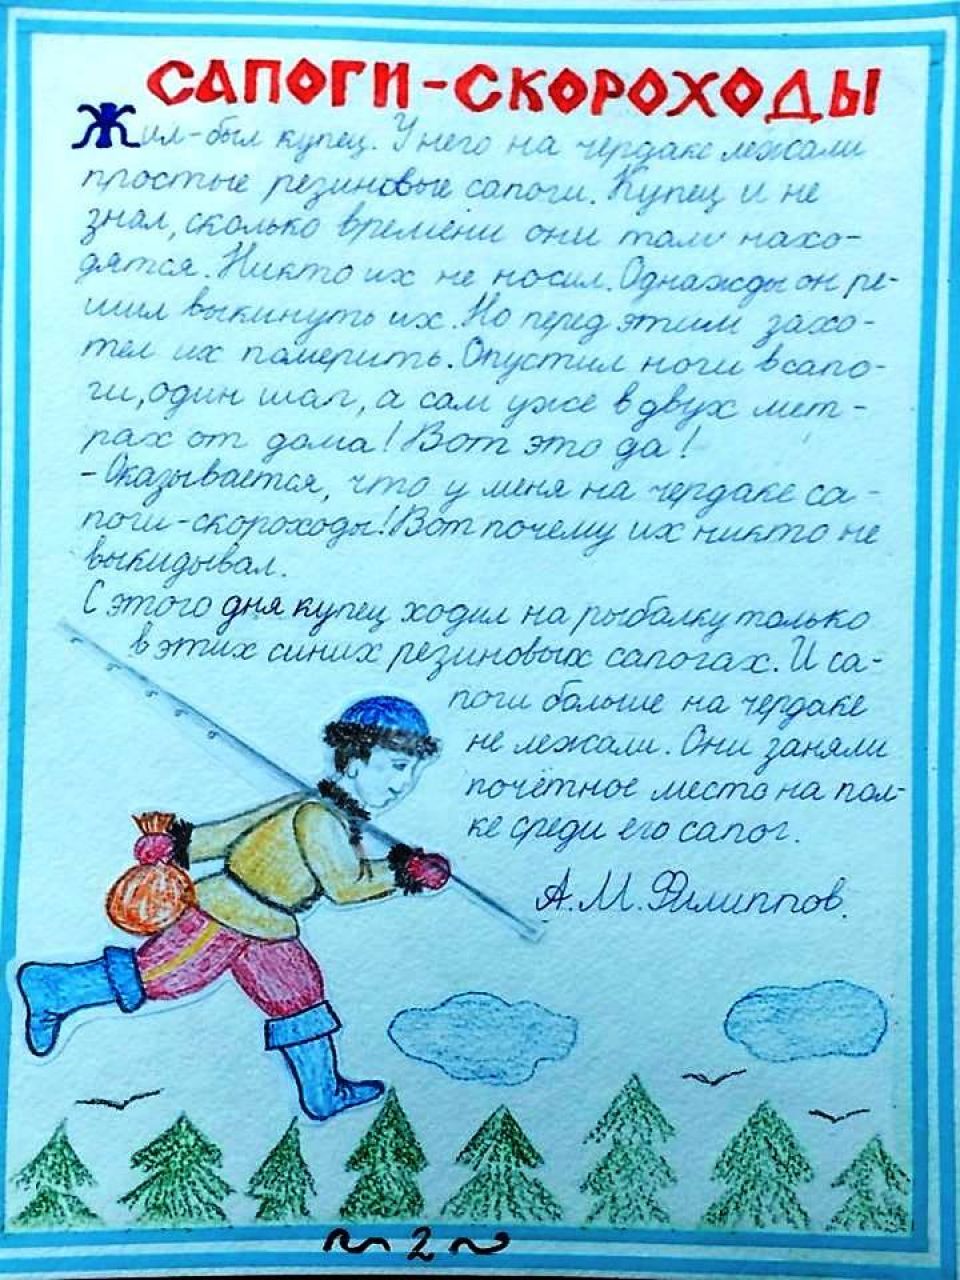 САПОГИ-СКОРОХОДЫ
Жил-был купец. У него на чердаке лежали
простые резиновые сапоги. Купец и не
знал, сколько времени они там нахо-
дятся. Никто их не носил. Однажды он ре-
шил выкинуть их. Но перед этим захо-
тел их померить. Опустил ноги в сапо-
ги, один шаг, а сам уже в двух мет-
рах от дома! Вот это да!
- Оказывается, что у меня на чердаке са-
поги-скороходы! Вот почему их никто не
выкидывал.
С этого дня купец ходил на рыбалку только
в этих синих резиновых сапогах. И са-
поги больше на чердаке
не лежали. Они заняли
почётное место на пол-
ке среди его сапог.
А.М.Филиппов.
2